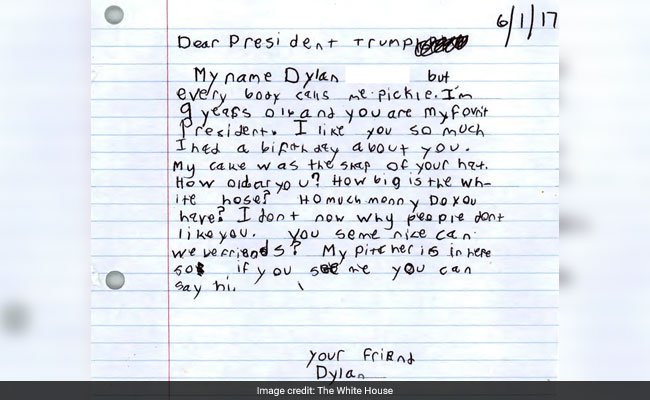 6/1/17
Dear President Trump
My name Dylan but
every body calls me pickle. I'm
9 years old and you are my fovrit
President. I like you so much
I had a birthday about you.
My cake was the shap of your hat.
How old ar you? How big is the wh-
ite hose? Ho much monny Do you
have? I dont now why people dont
like you. You seme nice can
we be friends? My pitcher is in here
so if you see me you can
say hi.
your friend
Dylan
Image credit: The White House